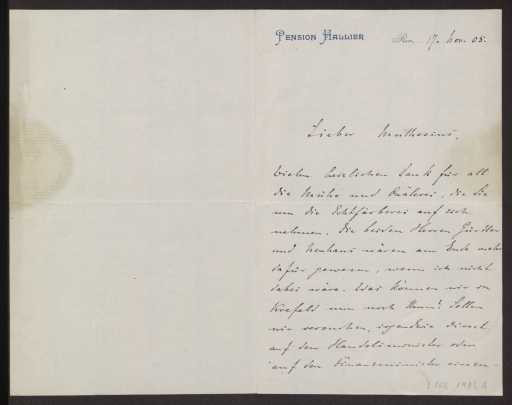 PENSION HALLIER
17. Nov. 05.
Lieber Muthesius,
Vielen herzlichen Dank für all
die Mühe und Quälerei, die Sie
um die Echtfärberei auf sich
nehmen. Die beiden Herren
und Neuhaus wären am Ende mehr
dafür gewesen, wenn ich nicht
dabei wäre. Was können wir in
Krefeld nun noch thun? Sollen
wir versuchen, irgendwie direct
auf den Handelsminister oder
auf den Finanzminister einen